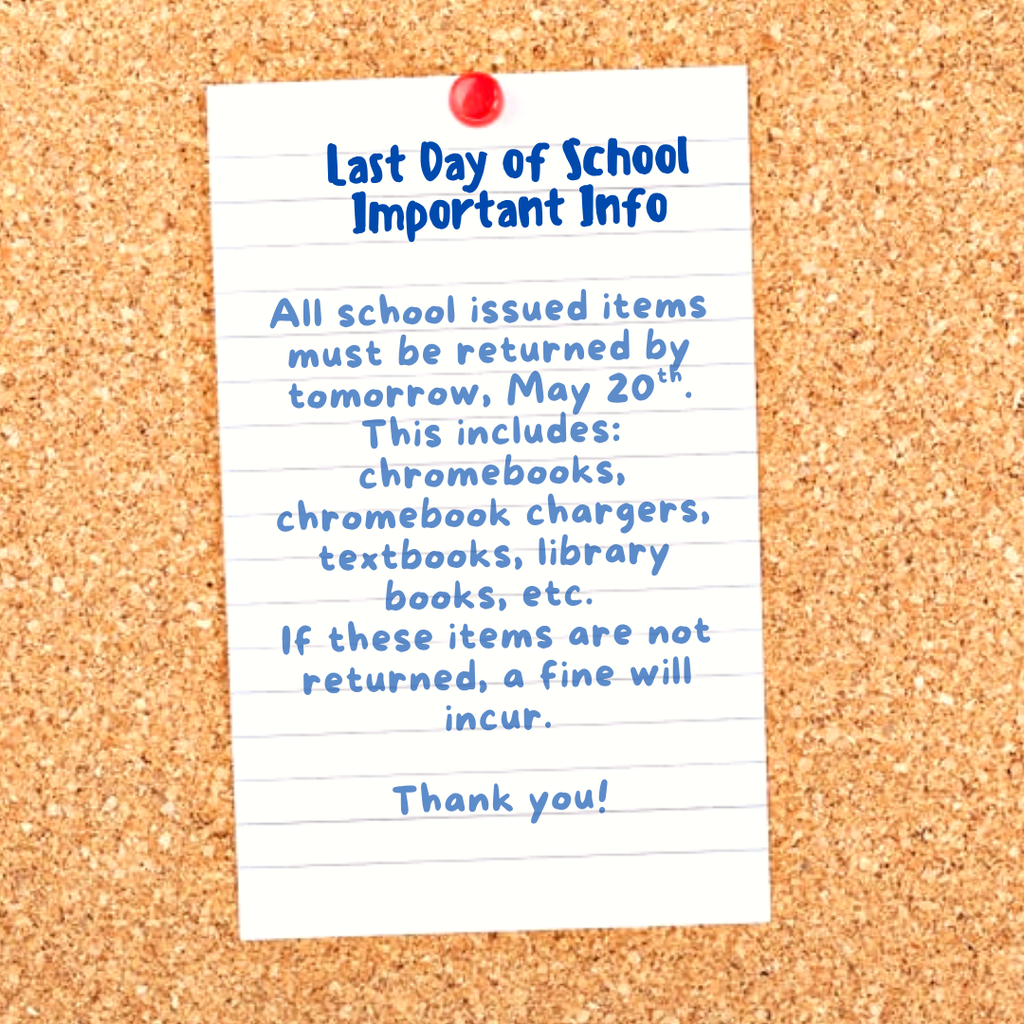 Last Day of School
Important Info
All school issued items
must be returned by
tomorrow, May 20th.
This includes:
chromebooks,
chromebook chargers,
textbooks, library
books, etc.
If these items are not
returned, a fine will
incur.
Thank you!